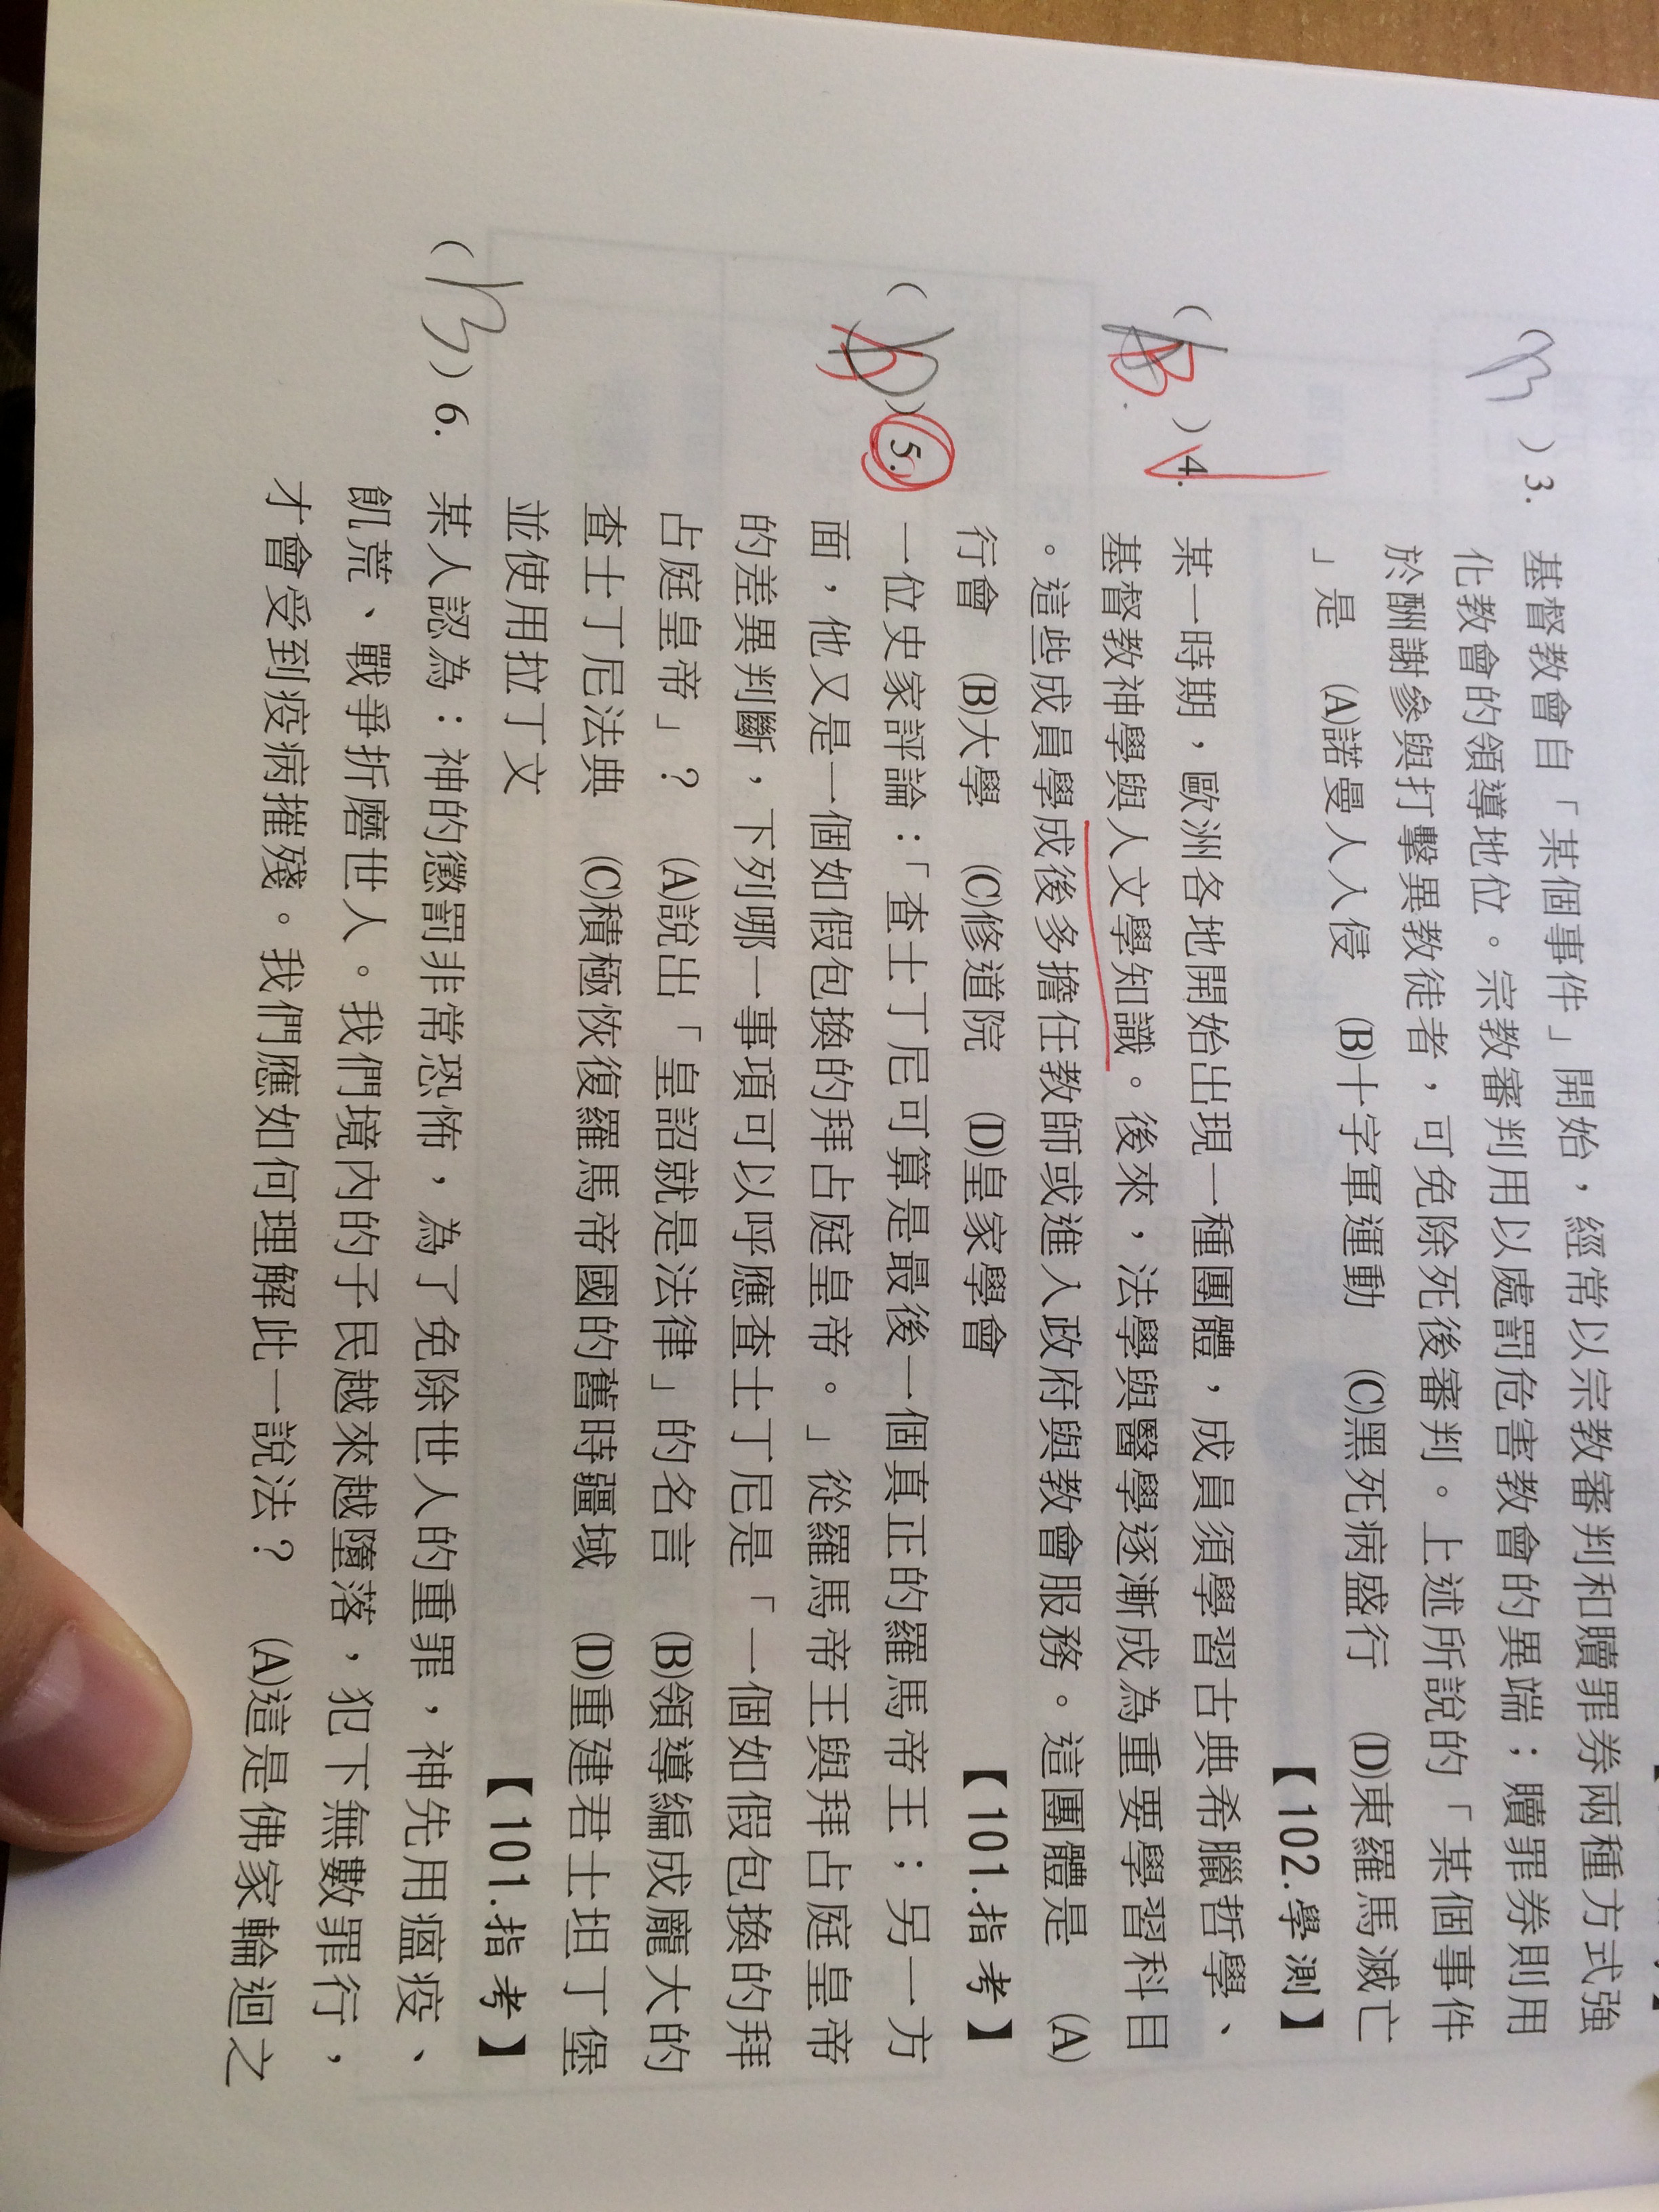 ( B ) 3. 基督教會自「某個事件」開始，經常以宗教審判和贖罪券兩種方式強
化教會的領導地位。宗教審判用以處罰危害教會的異端；贖罪券則用
於酬謝參與打擊異教徒者，可免除死後審判。上述所說的「某個事件
」是 (A)諾曼人入侵 (B)十字軍運動 (C)黑死病盛行 (D)東羅馬滅亡
【102.學測】
( B ) 4. 某一時期，歐洲各地開始出現一種團體，成員須學習古典希臘哲學、
基督教神學與人文學知識。後來，法學與醫學逐漸成為重要學習科目
。這些成員學成後多擔任教師或進入政府與教會服務。這團體是 (A)
行會 (B)大學 (C)修道院 (D)皇家學會
【101.指考】
( D ) 5. 一位史家評論：「查士丁尼可算是最後一個真正的羅馬帝王；另一方
面，他又是一個如假包換的拜占庭皇帝。」從羅馬帝王與拜占庭皇帝
的差異判斷，下列哪一事項可以呼應查士丁尼是「一個如假包換的拜
占庭皇帝」？ (A)說出「皇詔就是法律」的名言 (B)領導編成龐大的
查士丁尼法典 (C)積極恢復羅馬帝國的舊時疆域 (D)重建君士坦丁堡
並使用拉丁文
【101.指考】
( B ) 6. 某人認為：神的懲罰非常恐怖，為了免除世人的重罪，神先用瘟疫、
飢荒、戰爭折磨世人。我們境內的子民越來越墮落，犯下無數罪行，
才會受到疫病摧殘。我們應如何理解此一說法？ (A)這是佛家輪迴之